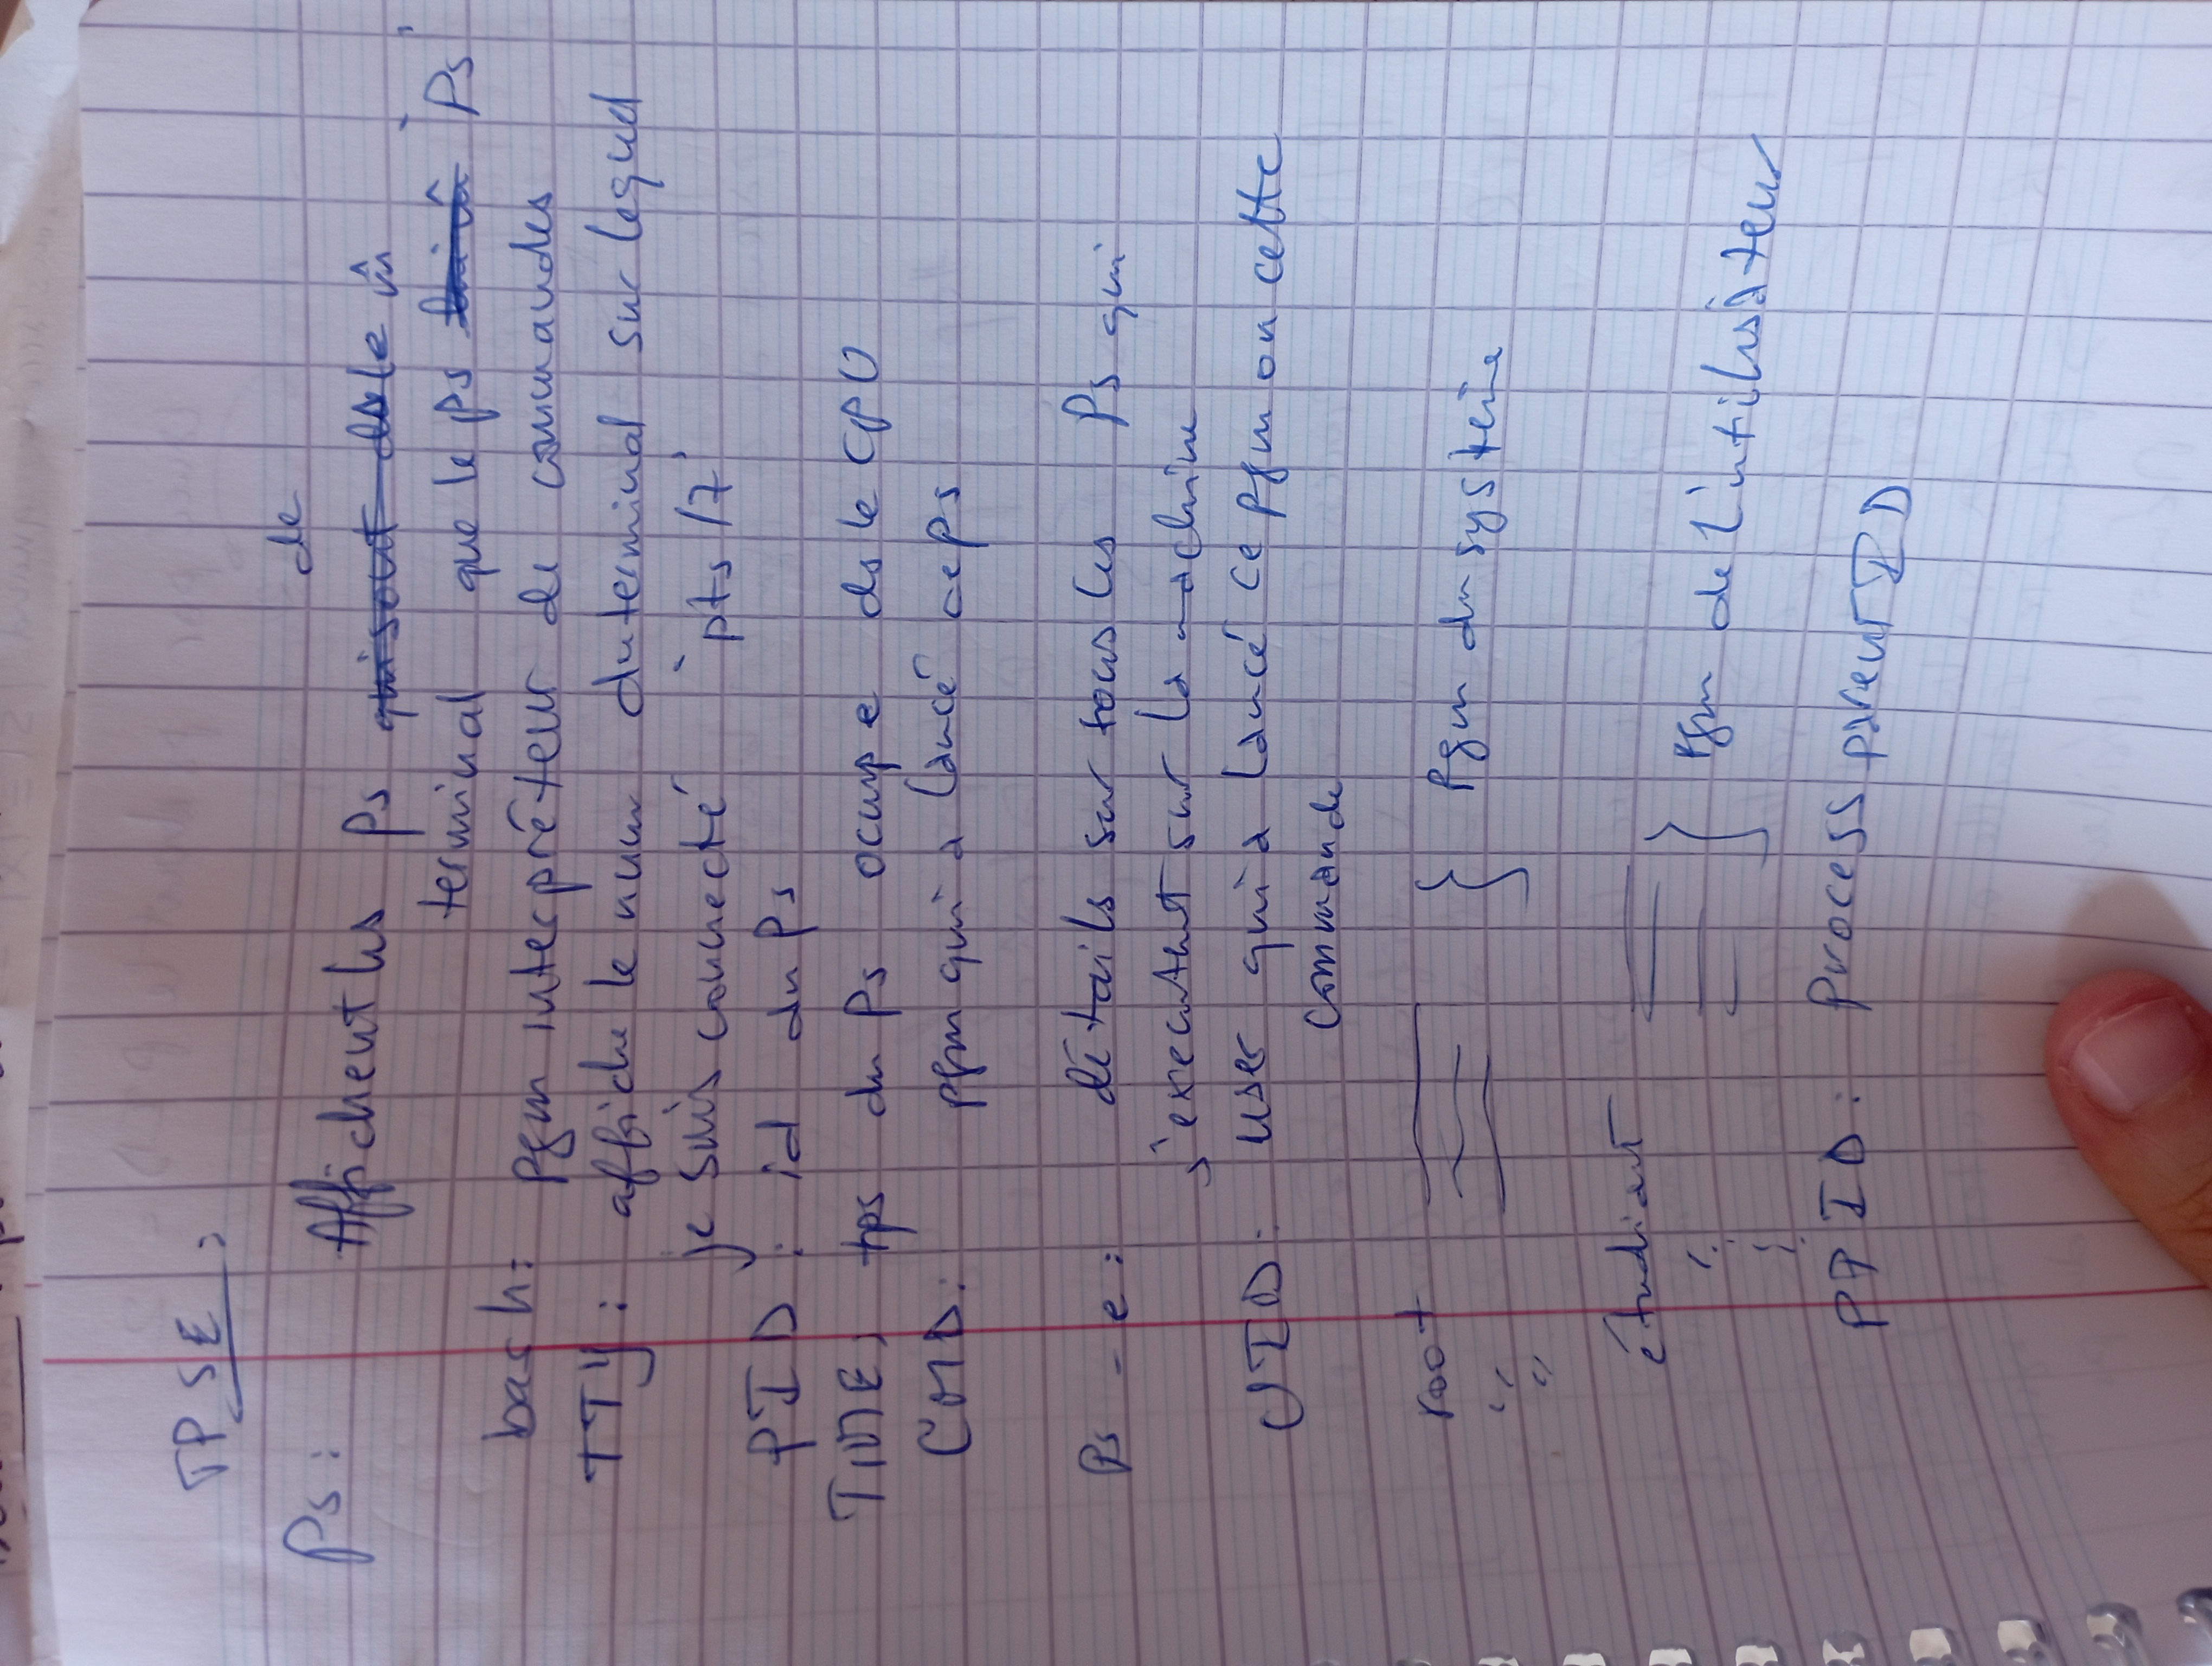 TP SE :
de
Ps : Affichent les Ps qui sont ds le m̂
terminal que le ps 'Ps'
bash : pgm interpréteur de commandes
TTY : affiche le num du terminal sur lequel
je suis connecté 'pts/7'
PID : id du Ps
TIME : tps du Ps ocuupe ds le CPU
CMD : pgm qui a lancé ce ps
Ps -e : détails sur tous les Ps qui
s'executent sur la machine
UID : user qui a lancé ce pgm ou cette
commande
root } pgm du système
"
"
étudiant } pgm de l'utilisateur
PPID : process parent ID